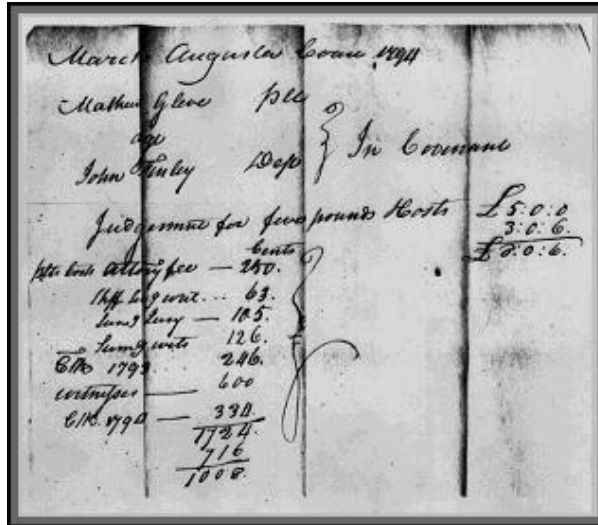 March Augusta Court 1794
Mathew Gleve plt
agt
John Finley Deft
In Covenant
Judgement for five pounds & Costs £5:0:0
3:0:6.
£8:0:6.
Cents
Attory fee — 250.
Shff serg writ ... 63.
Sumg Jury — 105.
Sumg wits 126.
Clk 1793. 246.
witnesses — 600
Clk. 1794 — 334.
1724.
716
1008.